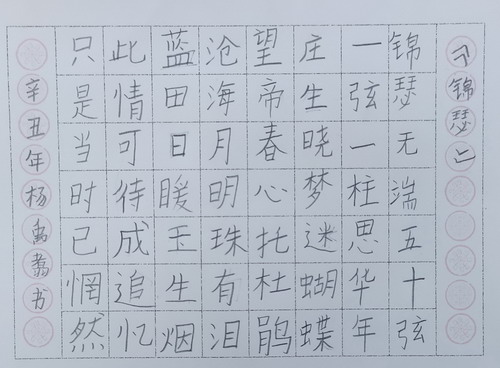 《锦瑟》
锦瑟无端五十弦
一弦一柱思华年
庄生晓梦迷蝴蝶
望帝春心托杜鹃
沧海月明珠有泪
蓝田日暖玉生烟
此情可待成追忆
只是当时已惘然
辛丑年杨禹书